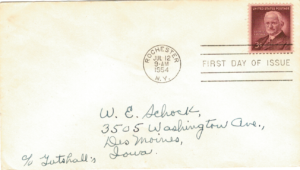 ROCHESTER
JUL 12
9-AM
1954
N.Y.
FIRST DAY OF ISSUE
3¢
W. E. Schock,
3505 Washington Ave.,
Des Moines,
Iowa.
℅ Tutshall's